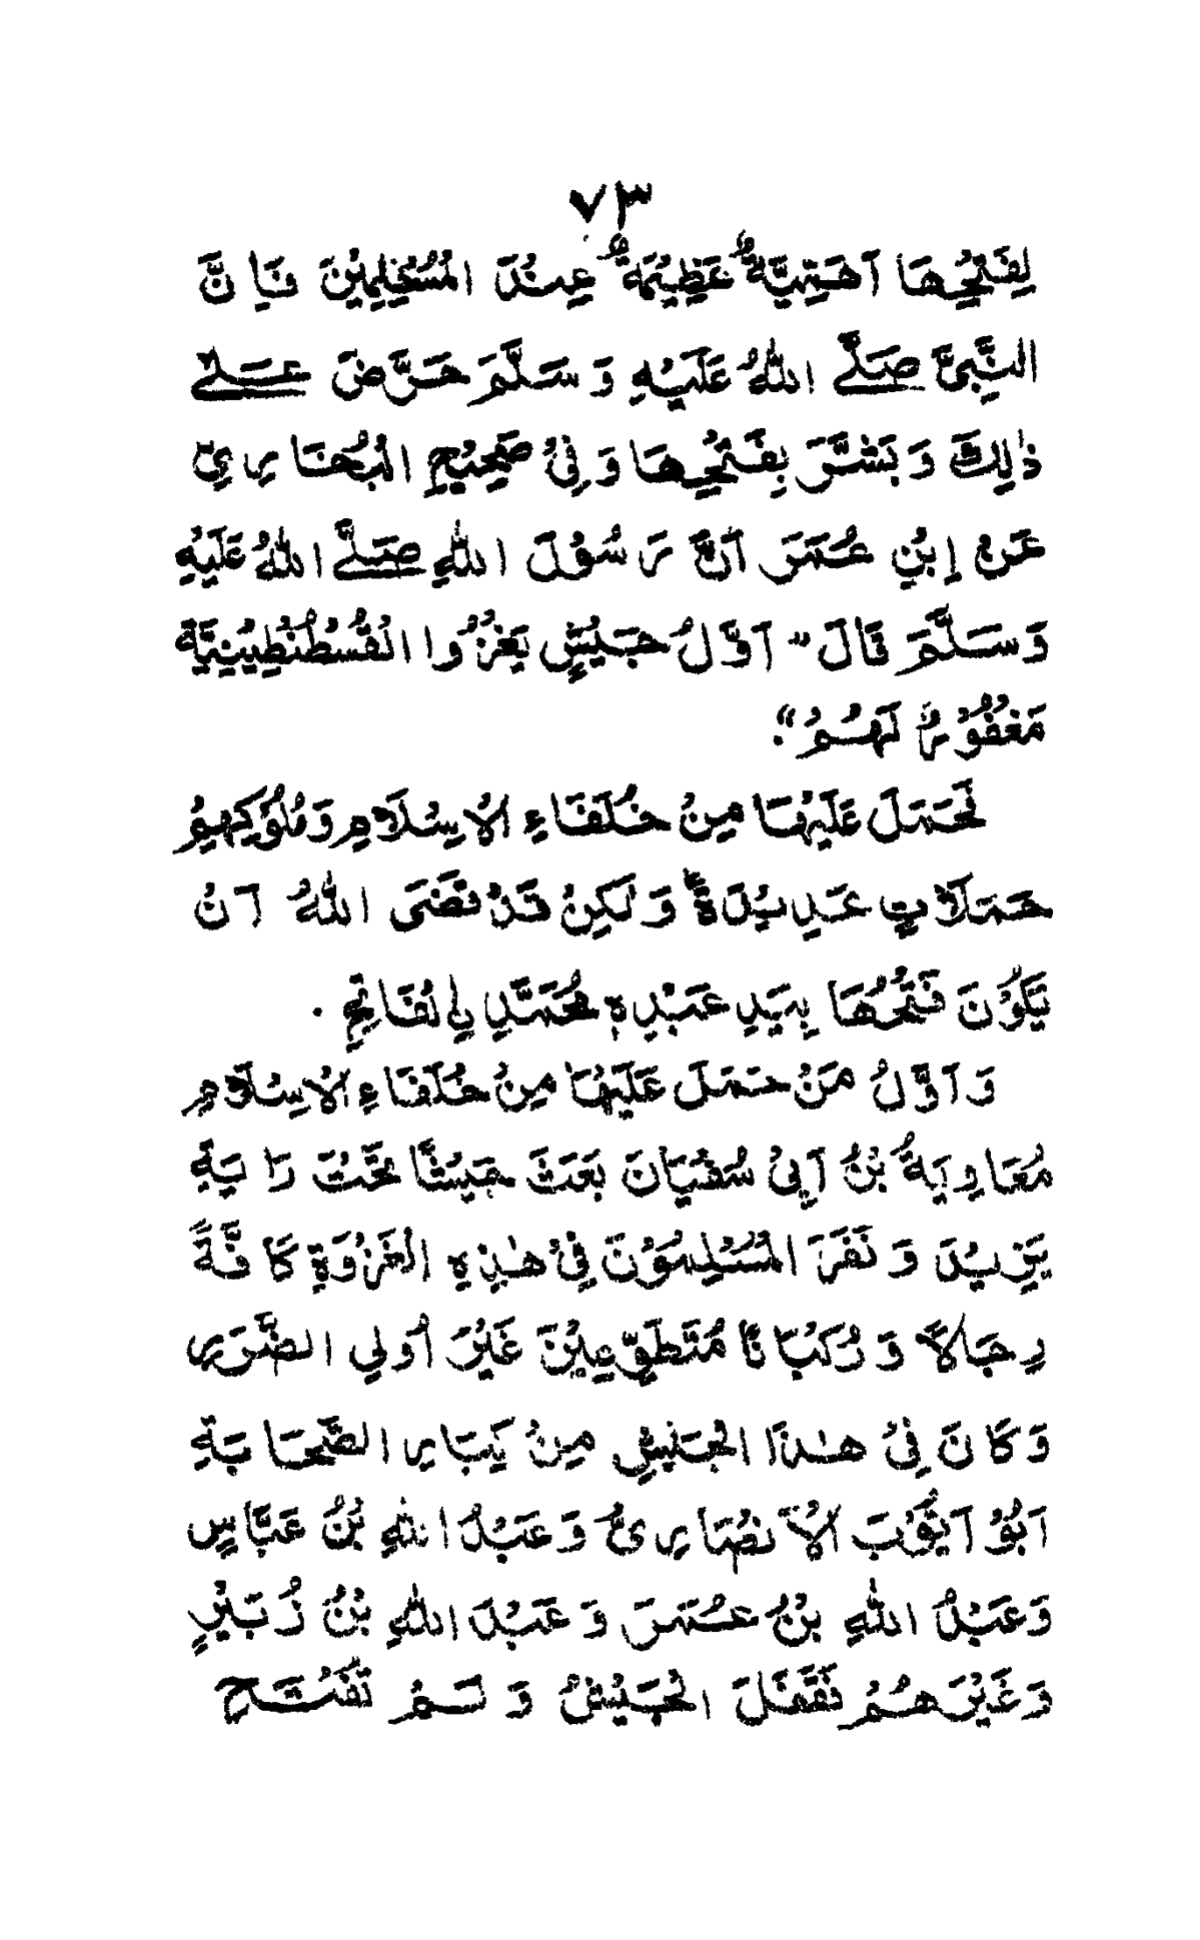 ٧٣
لِفَتْحِهَا اَهَمِّيَّةٌ عَظِيْمَةٌ عِنْدَ الْمُسْلِمِيْنَ فَاِنَّ
النَّبِيَّ صَلَّے اللهُ عَلَيْهِ وَسَلَّمَ حَرَّضَ عَلے
ذٰلِكَ وَبَشَّرَ بِفَتْحِهَا وَفِيْ صَحِيْحِ الْبُخَارِيِّ
عَنْ اِبْنِ عُمَرَ اَنَّ رَسُوْلَ اللهِ صَلَّے اللهُ عَلَيْهِ
وَسَلَّمَ قَالَ "اَوَّلُ جَيْشٍ يَغْزُوا الْقُسْطُنْطِيْنِيَّةَ
مَغْفُوْرٌ لَهُمْ".
فَحَمَلَ عَلَيْهَا مِنْ خُلَفَاءِ الْاِسْلَامِ وَمُلُوْكِهِمْ
حَمَلَاتٍ عَدِيْدَةً وَلَكِنْ قَدْ قَضَى اللهُ اَنْ
يَكُوْنَ فَتْحُهَا بِيَدِ عَبْدِهٖ مُحَمَّدِ ࣙالْفَاتِحِ .
وَاَوَّلُ مَنْ حَمَلَ عَلَيْهَا مِنْ خُلَفَاءِ الْاِسْلَامِ
مُعَاوِيَةُ بْنُ اَبِيْ سُفْيَانَ بَعَثَ جَيْشًا تَحْتَ رَايَةِ
يَزِيْدَ وَنَفَرَ الْمُسْلِمُوْنَ فِيْ هٰذِهِ الْغَزْوَةِ كَافَّةً
رِجَالًا وَرُكْبَانًا مُتَطَوِّعِيْنَ غَيْرَ اُولِي الضَّرَرِ
وَكَانَ فِيْ هٰذَا الْجَيْشِ مِنْ كِبَارِ الصَّحَابَةِ
اَبُوْ اَيُّوْبَ الْاَنْصَارِيُّ وَعَبْدُ اللهِ بْنُ عَبَّاسٍ
وَعَبْدُ اللهِ بْنُ عُمَرَ وَعَبْدَ اللهِ بْنُ زُبَيْرٍ
وَغَيْرَهُمْ فَقَفَلَ الْجَيْشُ وَلَمْ تَفْتَحْ